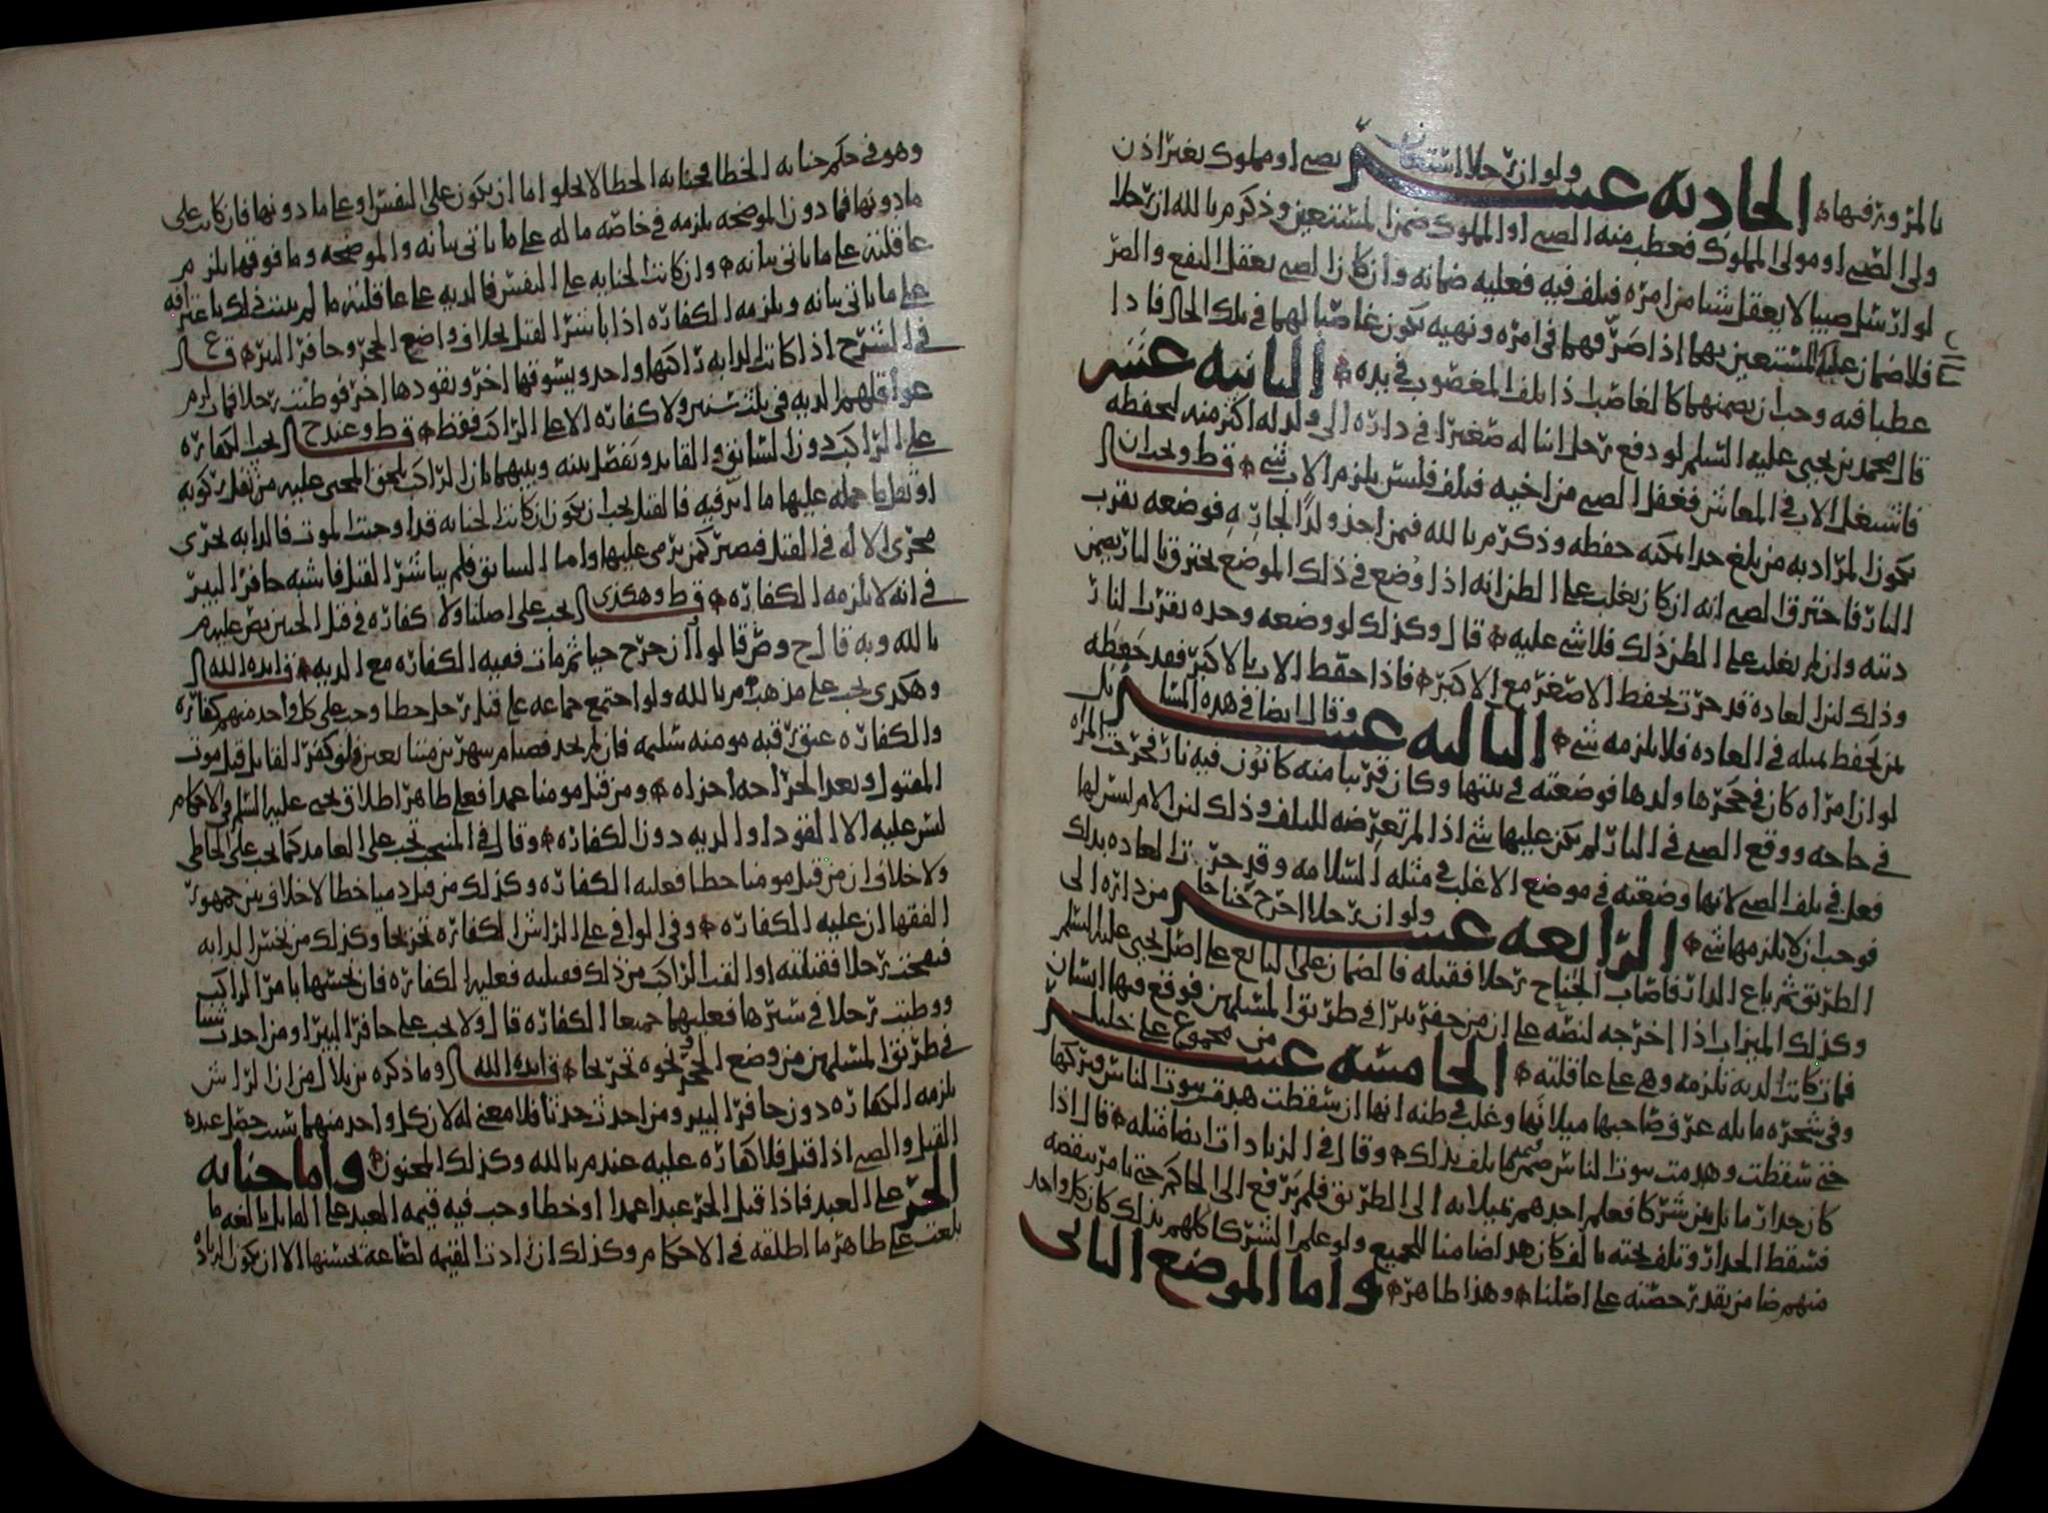 بالمرور فيها الحادية عشر ولو ان رجلا استعان بصبي او مملوك بغير اذن
ولي الصبي او مولى المملوك فعطب منه الصبي او المملوك ضمن المستعين وذكر م بالله ان رجلا
لو ارسل صبيا لا يعقل شيا من امره فتلف فيه فعليه ضمانه وان كان الصبي يعقل النفع والضر
فلا ضمان عليه المستعين بهما اذا صرفهما في امره ونهيه يكون غاصبا لهما في تلك الحال فاذا
عطبا فيه وجب ان يضمنهما كالغاصب اذا تلف المغصوب في يده الثانية عشر
قال محمد بن يحيى عليه السلم لو دفع رجل ابنا له صغيرا في داره الى ولد له اكبر منه ليحفظه
فاشتغل الاب في المعاش فغفل الصبي عن اخيه فتلف فليس يلزم الاب شي قط ويجب ان
يكون المراد به من بلغ حدا يمكنه حفظه وذكر م بالله فيمن اخذ ولدا لجاره فوضعه بقرب
النار فاحترق الصبي انه ان كان يغلب على الظن انه اذا وضع في ذلك الموضع يحترق بالنار يضمن
ديته وان لم يغلب على الظن ذلك فلا شي عليه قال وكذلك لو وضعه وحده بقرب النار
وذلك لان العادة قد جرت بحفظ الاصغر مع الاكبر فاذا حفظ الاب بالاكبر فقد حفظه
بمن يحفظ بمثله في العادة فلا يلزمه شي الثالثة عشر وقال ايضا في هذه المسائل
لو ان امراة كان في حجرها ولدها فوضعته في بيتها وكان قريبا منه كانون فيه نار فخرجت المراه
في حاجه ووقع الصبي في النار لم يكن عليها شي اذا لم تعرضه للتلف وذلك لان الام ليس لها
فعل في تلف الصبي لانها وضعته في موضع الاغلب في مثله السلامه وقد جرت العادة بذلك
فوجب ان لا يلزمها شي الرابعة عشر ولو ان رجلا اخرج جناحا من داره الى
الطريق ثم باع الدار فاصاب الجناح رجلا فقتله فالضمان على البايع على اصل يحيى عليه السلم
وكذلك الميزاب اذا اخرجه لنصه على ان من حفر بيرا في طريق المسلمين فوقع فيها انسان
فمات كانت الدية تلزمه وهي على عاقلته الخامسة عشر من مجموع علي خليل
وفي شجره مايله عرف صاحبها ميلانها وغلب في ظنه انها ان سقطت هدمت بيوت الناس فتركها
حتى سقطت وهدمت بيوت الناس ضمن ما تلف بذلك وقال في الزيادات ايضا مثله قال اذا
كان جدار مايل بين شركا فعلم احدهم بميلانه الى الطريق فلم يرفع الى الحاكم حتى يامر بنقضه
فسقط الجدار وتلف تحته مالف كان هذا ضامنا للجميع ولو علم الشركا كلهم بذلك كان كل واحد
منهم ضامن بقدر حصته على اصلنا وهذا ظاهر واما الموضع الثاني
وهو في حكم جناية الخطا فجناية الخطا لا يخلو اما ان يكون على النفس او على ما دونها فان كانت على
ما دونها فما دون الموضحه يلزمه في خاصه ماله على ما ياتي بيانه والموضحه وما فوقها يلزم
عاقلته على ما ياتي بيانه وان كانت الجنايه على النفس فالديه على عاقلته ما لم يثبت ذلك باعترافه
على ما ياتي بيانه ويلزمه الكفاره اذا باشر القتل بخلاف واضع الحجر وحافر البير قال
في الشرح اذا كانت الدابه راكبها واحد ويسوقها اخر ويقودها اخر فوطئت رجلا فمات لزم
عواقلهم الديه في ثلث سنين ولا كفاره الا على الراكب فقط قط وعند ح ال يجب الكفاره
على الراكب دون السائق والقايد ونفصل بينه وبينهما بان الراكب يلحق المجني عليه من ثقل ركوبه
او ثقل ما حمله عليها ما اثر فيه فالقتل يجب ان يكون ان كانت الجنايه قد اوجبت الموت فالدابه تجري
مجرى الاله في القتل فيصير كمن يرمي عليها واما السائق فلم يباشر القتل فاشبه حافر البير
في انه لا يلزمه الكفاره قط وهكذى ال يجب على اصلنا ولا كفاره في قتل الجنين نص عليه م
بالله وبه قال ح وص قالوا ان خرج حيا ثم مات ففيه الكفاره مع الديه قايده الله ال
وهكذى يجب على مذهب م بالله ولو اجتمع جماعه على قتل رجل خطا وجب على كل واحد منهم كفاره
والكفاره عتق رقبه مومنه سليمه فان لم يجد فصيام شهرين متتابعين فلو كفر القاتل قبل موت
المقتول وبعد الجراحه اجزاه ومن قتل مومنا عمدا فعلى ظاهر اطلاق يحيى عليه السلم في الاحكام
ليس عليه الا القود او الديه دون الكفاره وقال في المنتخب تجب على العامد كما تجب على الخاطي
ولا خلاف ان من قتل مومنا خطا فعليه الكفاره وكذلك من قتل ذميا خطا لا خلاف بين جمهور
الفقها ان عليه الكفاره وفي الوافي على الراش الكفاره تحريجا وكذلك من نخس الدابه
فنفحت رجلا فقتلته او القت الراكب من ذلك فقتلته فعليه الكفاره فان نخسها بامر الراكب
ووطئت رجلا في سيرها فعليهما جميعا الكفاره قال ولا يجب على حافر البير او من احدث شيا
في طريق المسلمين من وضع الحجر ونحوه تخريجا قايده الله ال وما ذكره بن بلال من ان الراش
يلزمه الكفاره دون حافر البير ومن احدث حدثا فلا معنى له لان كل واحد منهما سبب حصل عنده
القتل والصبي اذا قتل فلا كفاره عليه عند م بالله وكذلك المجنون واما جناية
الحر على العبد فاذا قتل الحر عبدا عمدا او خطا وجب فيه قيمه العبد على القاتل بالغه ما
بلغت على ظاهر ما اطلقه في الاحكام وكذلك ان زادت القيمه لصناعه يحسنها الا ان يكون الزياده